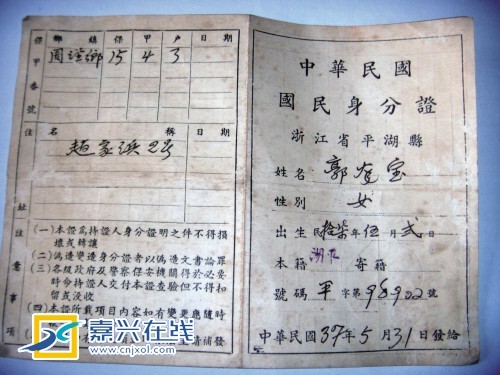 中華民國
國民身分證
浙江省平湖縣
姓名 郭 宝
性別 女
出生民拾柒年伍月貳日
本籍 寄籍
號碼 平字第98922號
中華民國37年5月31日發給
保甲番號 鄉鎮 保 甲 戶 日期
鄉 15 4 3
住址 名稱 日期
趙家浜
注意事項
(一)本證為持證人身分證明之件不得損
壞或轉讓
(二)偽造變造身分證者以偽造文書論罪
(三)各級政府及警察保安機關得於必要
時令持證人交付本證查驗但不得扣
留或没收
(四)本證所載項目內容如有變更應隨時
請補發
嘉兴在线
www.cnjxol.com